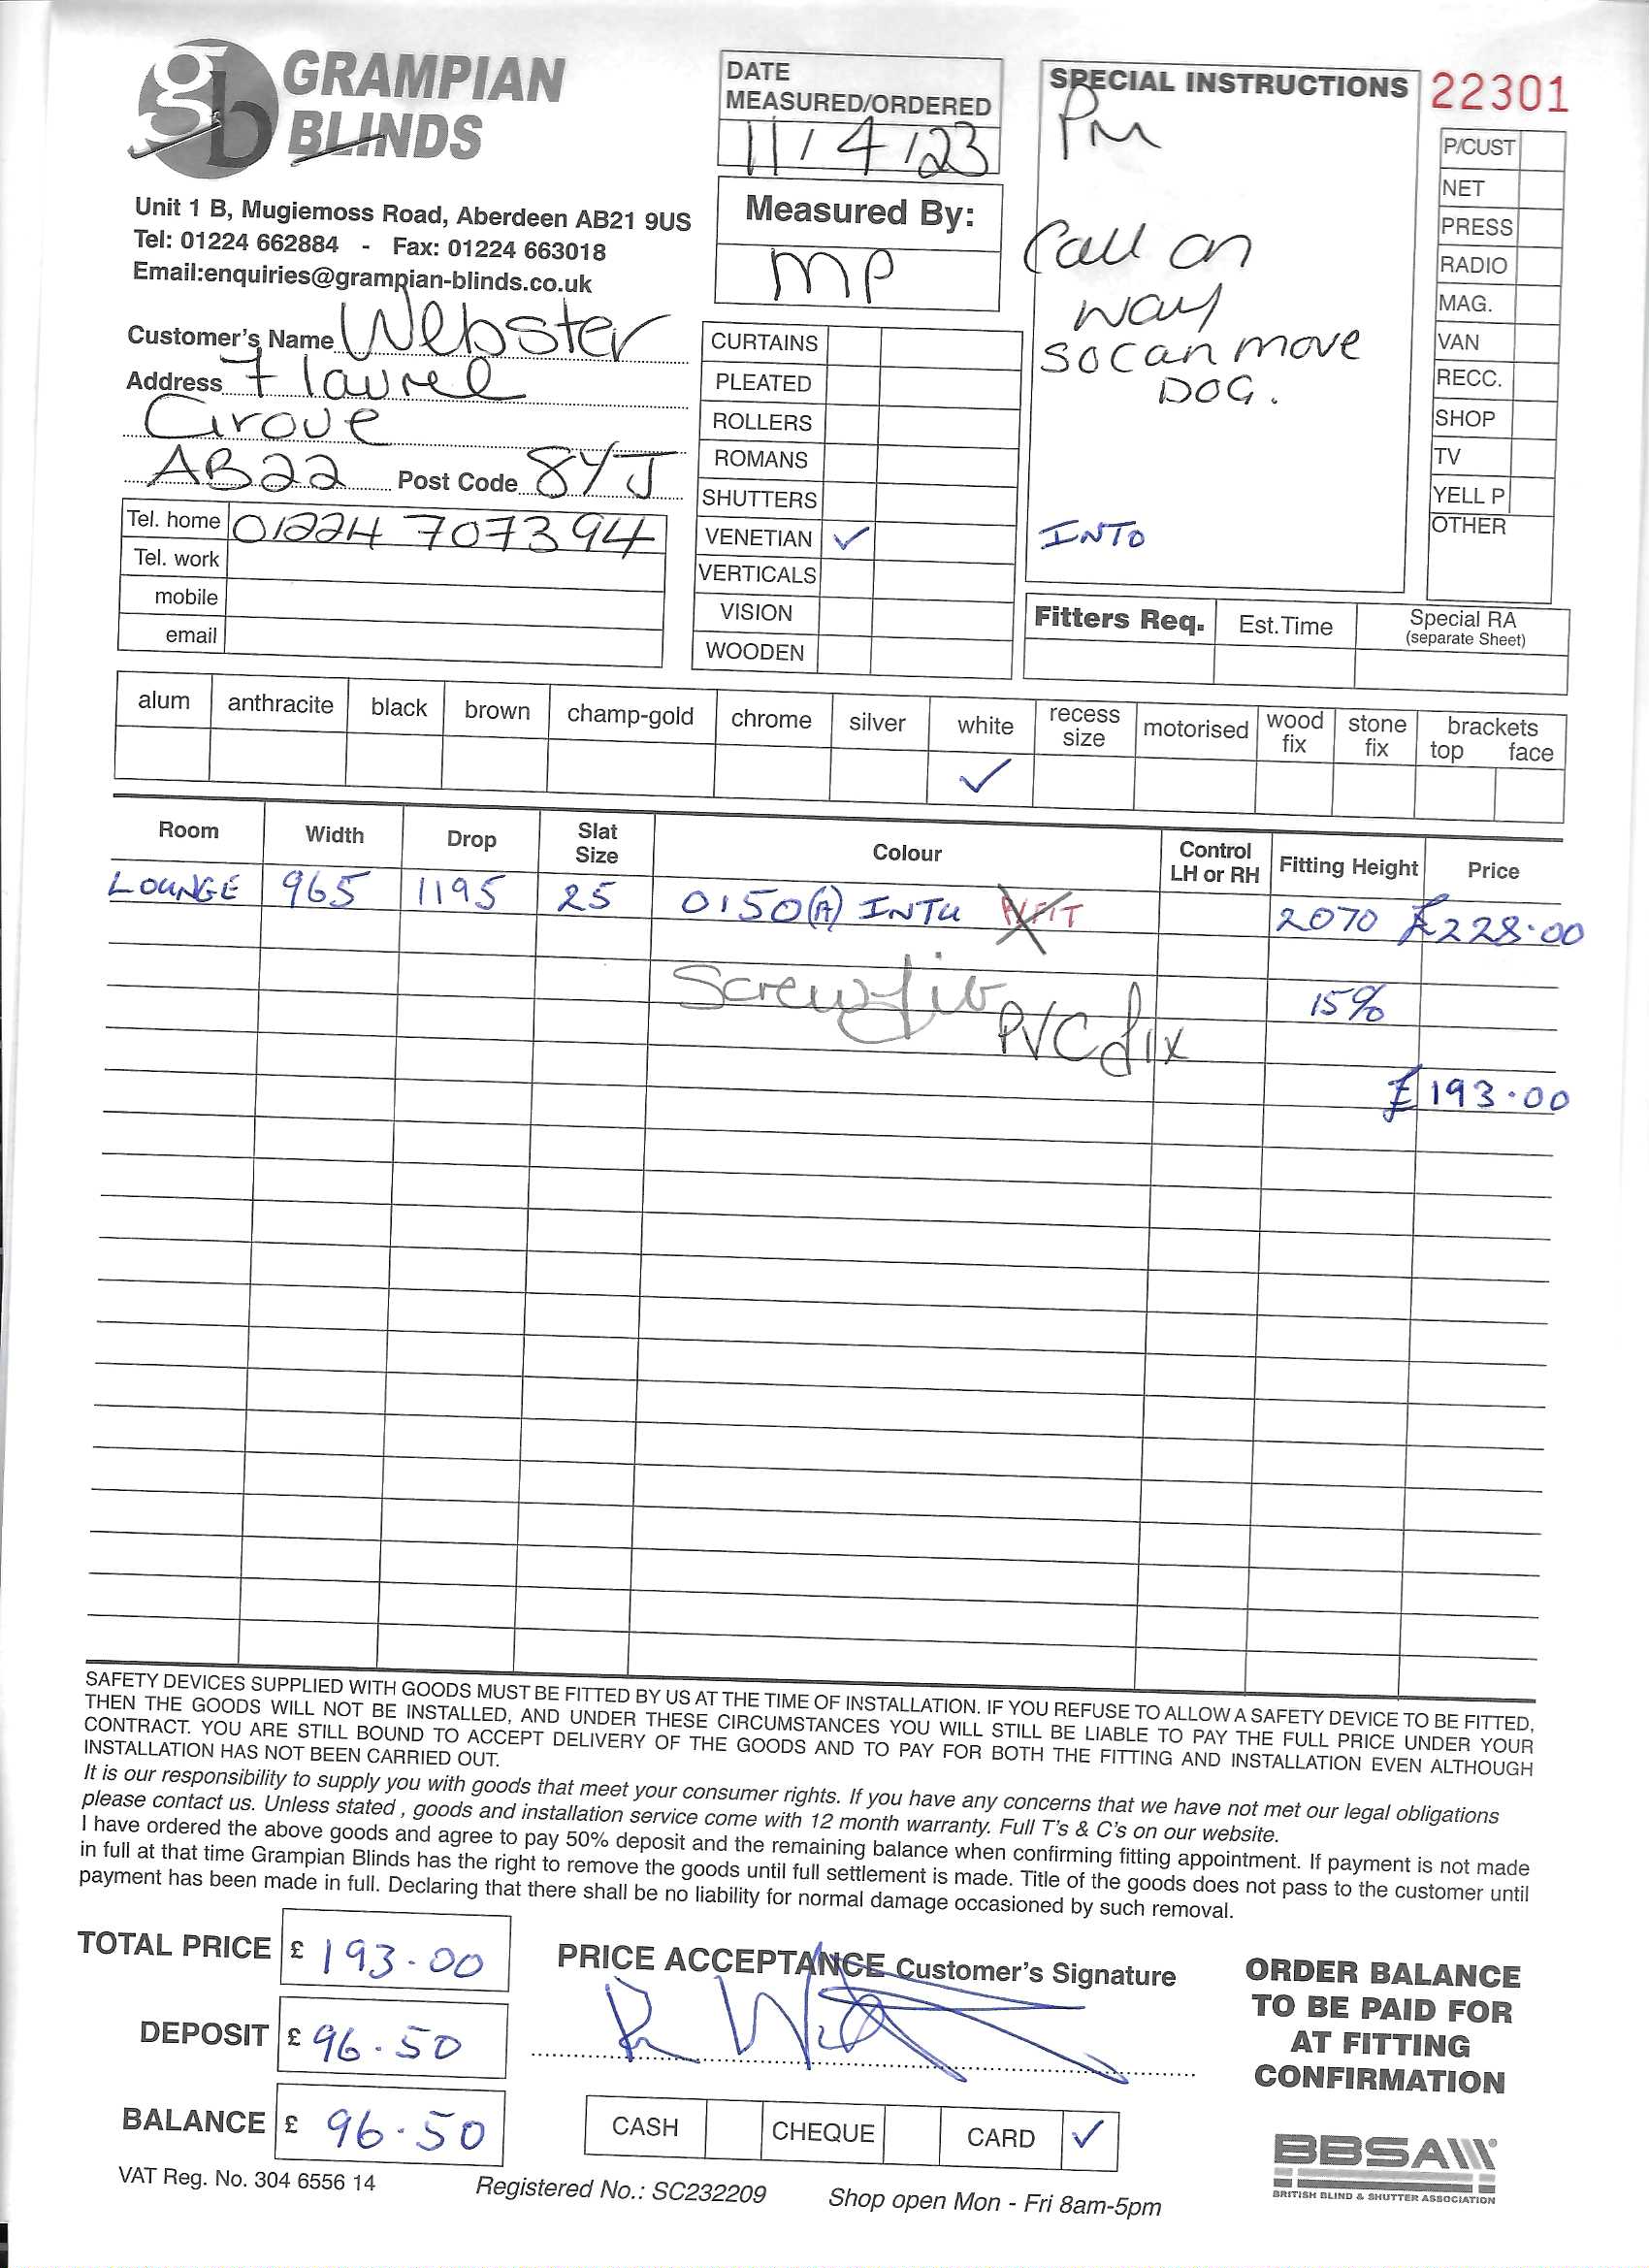 gb GRAMPIAN
BLINDS
Unit 1 B, Mugiemoss Road, Aberdeen AB21 9US
Tel: 01224 662884 - Fax: 01224 663018
Email:enquiries@grampian-blinds.co.uk
Customer's Name Webster
Address 7 laurel
Grove
AB22 Post Code 8YJ
Tel. home 01224 707394
Tel. work
mobile
email
DATE
MEASURED/ORDERED
11/4/23
Measured By:
MP
CURTAINS
PLEATED
ROLLERS
ROMANS
SHUTTERS
VENETIAN ✓
VERTICALS
VISION
WOODEN
SPECIAL INSTRUCTIONS
PM
Call on
way
so can move
DOG.
INTO
22301
P/CUST
NET
PRESS
RADIO
MAG.
VAN
RECC.
SHOP
TV
YELL P
OTHER
Fitters Req. Est.Time Special RA
(separate Sheet)
alum anthracite black brown champ-gold chrome silver white recess size motorised wood fix stone fix brackets top face
✓
Room Width Drop Slat Size Colour Control LH or RH Fitting Height Price
LOUNGE 965 1195 25 0150(A) INTU 2070 £228.00
Screwfix 15%
PVC fix
£193.00
SAFETY DEVICES SUPPLIED WITH GOODS MUST BE FITTED BY US AT THE TIME OF INSTALLATION. IF YOU REFUSE TO ALLOW A SAFETY DEVICE TO BE FITTED,
THEN THE GOODS WILL NOT BE INSTALLED, AND UNDER THESE CIRCUMSTANCES YOU WILL STILL BE LIABLE TO PAY THE FULL PRICE UNDER YOUR
CONTRACT. YOU ARE STILL BOUND TO ACCEPT DELIVERY OF THE GOODS AND TO PAY FOR BOTH THE FITTING AND INSTALLATION EVEN ALTHOUGH
INSTALLATION HAS NOT BEEN CARRIED OUT.
It is our responsibility to supply you with goods that meet your consumer rights. If you have any concerns that we have not met our legal obligations
please contact us. Unless stated , goods and installation service come with 12 month warranty. Full T's & C's on our website.
I have ordered the above goods and agree to pay 50% deposit and the remaining balance when confirming fitting appointment. If payment is not made
in full at that time Grampian Blinds has the right to remove the goods until full settlement is made. Title of the goods does not pass to the customer until
payment has been made in full. Declaring that there shall be no liability for normal damage occasioned by such removal.
TOTAL PRICE £ 193.00
DEPOSIT £ 96.50
BALANCE £ 96.50
PRICE ACCEPTANCE Customer's Signature
CASH CHEQUE CARD ✓
ORDER BALANCE
TO BE PAID FOR
AT FITTING
CONFIRMATION
BBSA
BRITISH BLIND & SHUTTER ASSOCIATION
VAT Reg. No. 304 6556 14 Registered No.: SC232209 Shop open Mon - Fri 8am-5pm